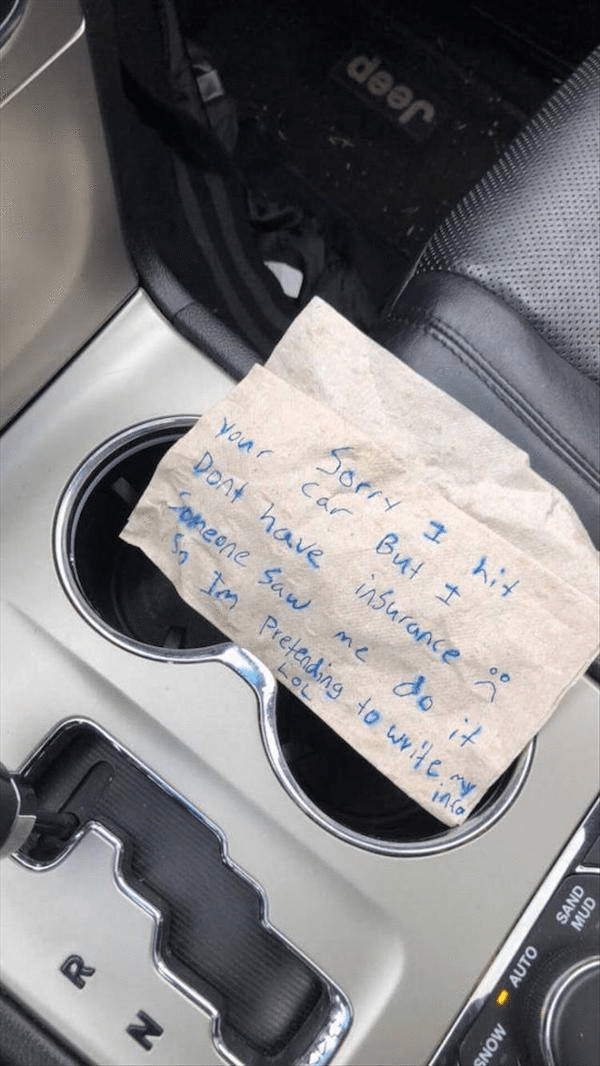 Jeep
Sorry I hit
your car But I
Dont have insurance :(
Someone saw me do it
So Im Pretending to write my
LOL info
R
N
SNOW
AUTO
SAND
MUD